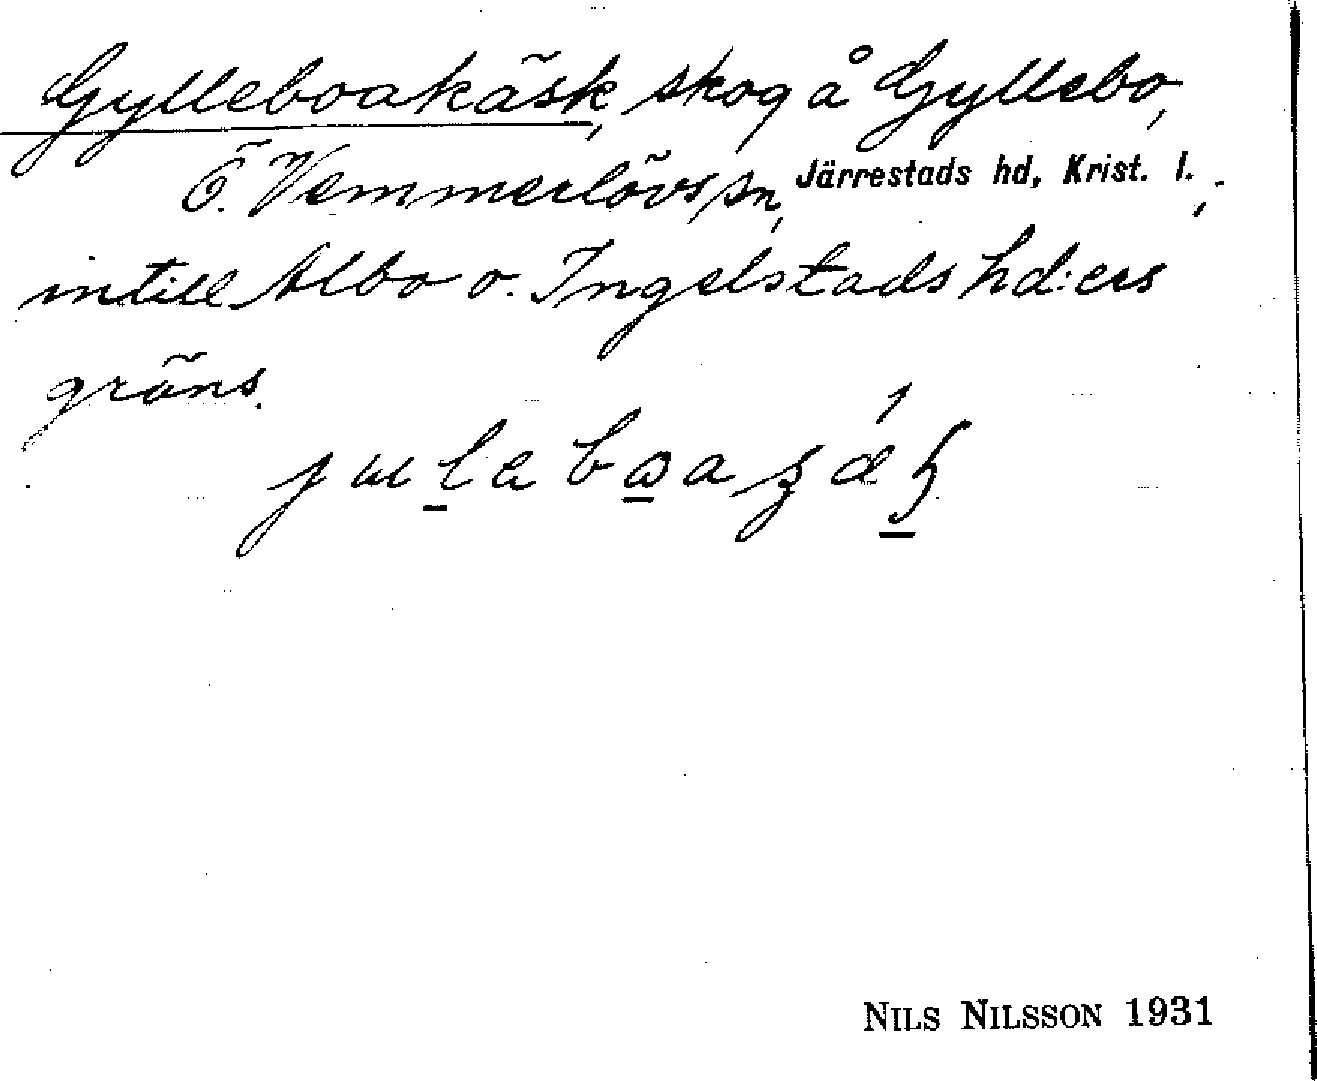 Gylleboakäsk, skog å Gyllebo,
Ö. Vemmerlövs sn, Järrestads hd, Krist. l.,
intill Albo o. Ingelstads hd:ers
gräns.
NILS NILSSON 1931